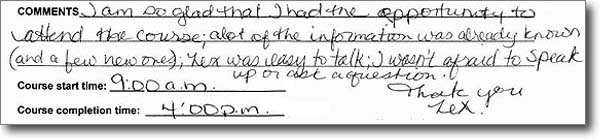 COMMENTS I am so glad that I had the opportunity to
attend the course; alot of the information was already known
(and a few new ones); Lex was easy to talk; I wasn't afraid to speak
up or ask a question.
Thank you
Lex.
Course start time: 9:00 a.m.
Course completion time: 4:00 p.m.